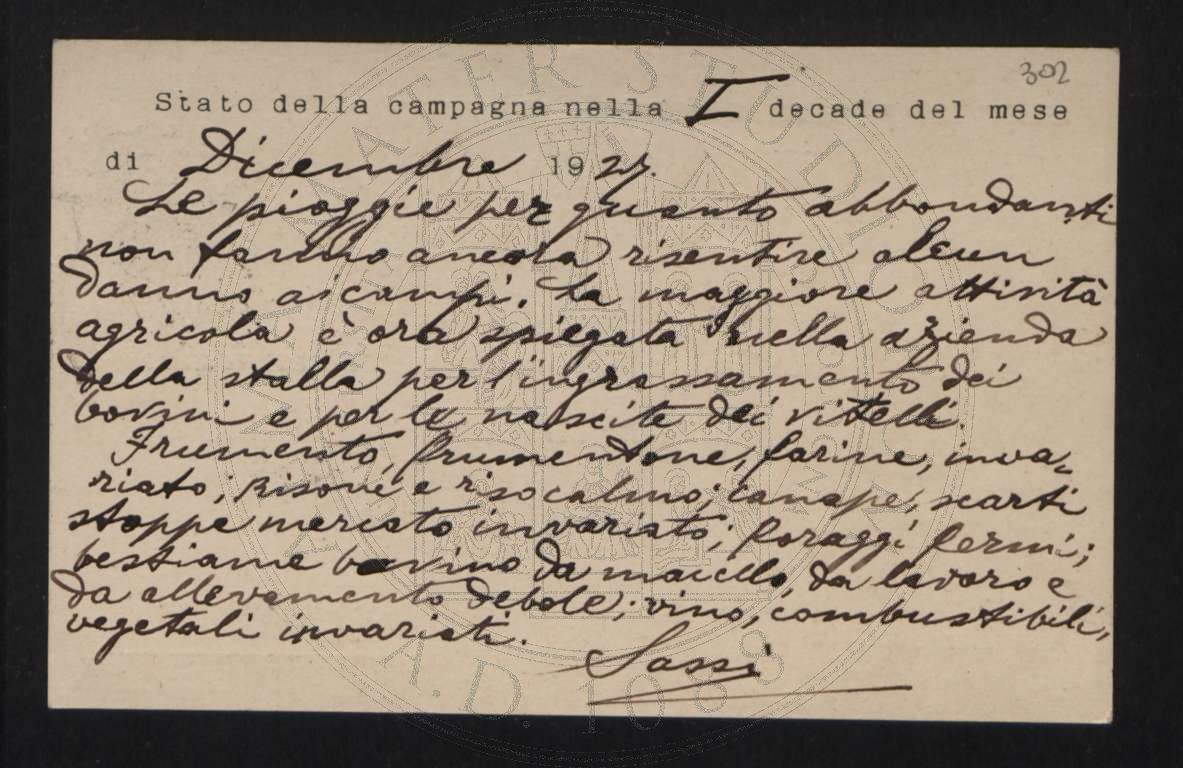 302
Stato della campagna nella I decade del mese
di Dicembre 1927.
Le pioggie per quanto abbondanti
non fanno ancora risentire alcun
danno ai campi. La maggiore attività
agricola è ora spiegata nella azienda
della stalla per l'ingrassamento dei
bovini e per le nascite dei vitelli.
Frumento, frumentone, farine, inva=
riato; Risone e riso calmo; canape, scarti
stoppe mercato invariato; foraggi fermi;
bestiame bovino da macello, da lavoro e
da allevamento debole; vino, combustibili,
vegetali invariati.
Sassi
ALMA MATER STUDIORUM
A.D. 1088